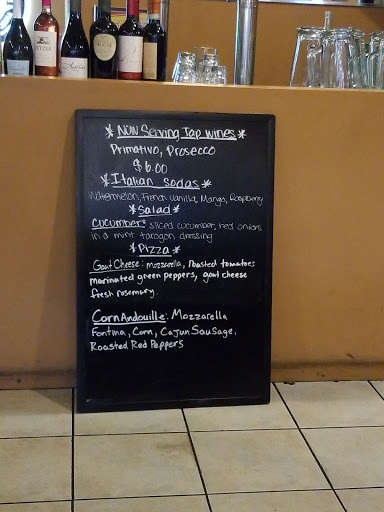 * Now Serving Tap Wines *
Primativo, Prosecco
$6.00
* Italian Sodas *
Watermelon, French Vanilla, Mango, Raspberry
* Salad *
Cucumber* sliced cucumber, red onions
in a mint taragon dressing
* Pizza *
Goat Cheese: mozzarella, roasted tomatoes
marinated green peppers, goat cheese
fresh rosemary.
Corn Andouille: Mozzarella
Fontina, Corn, Cajun Sausage,
Roasted Red Peppers